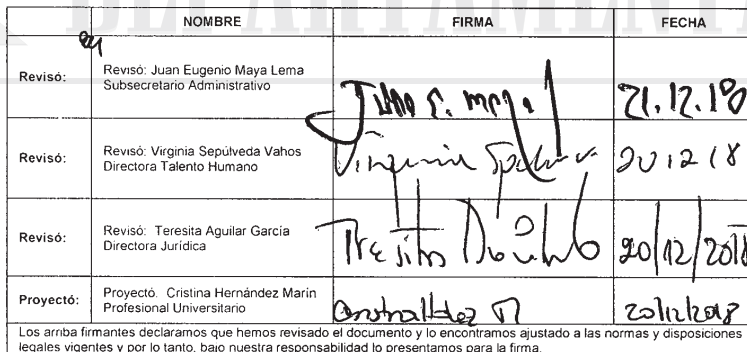 DEPARTAMENT
NOMBRE FIRMA FECHA
Revisó: Revisó: Juan Eugenio Maya Lema
Subsecretario Administrativo
21.12.18
Revisó: Revisó: Virginia Sepúlveda Vahos
Directora Talento Humano
Virginia 20 12 18
Revisó: Revisó: Teresita Aguilar García
Directora Jurídica
20/12/2018
Proyectó: Proyectó. Cristina Hernández Marín
Profesional Universitario
20/12/2018
Los arriba firmantes declaramos que hemos revisado el documento y lo encontramos ajustado a las normas y disposiciones
legales vigentes y por lo tanto, bajo nuestra responsabilidad lo presentamos para la firma.